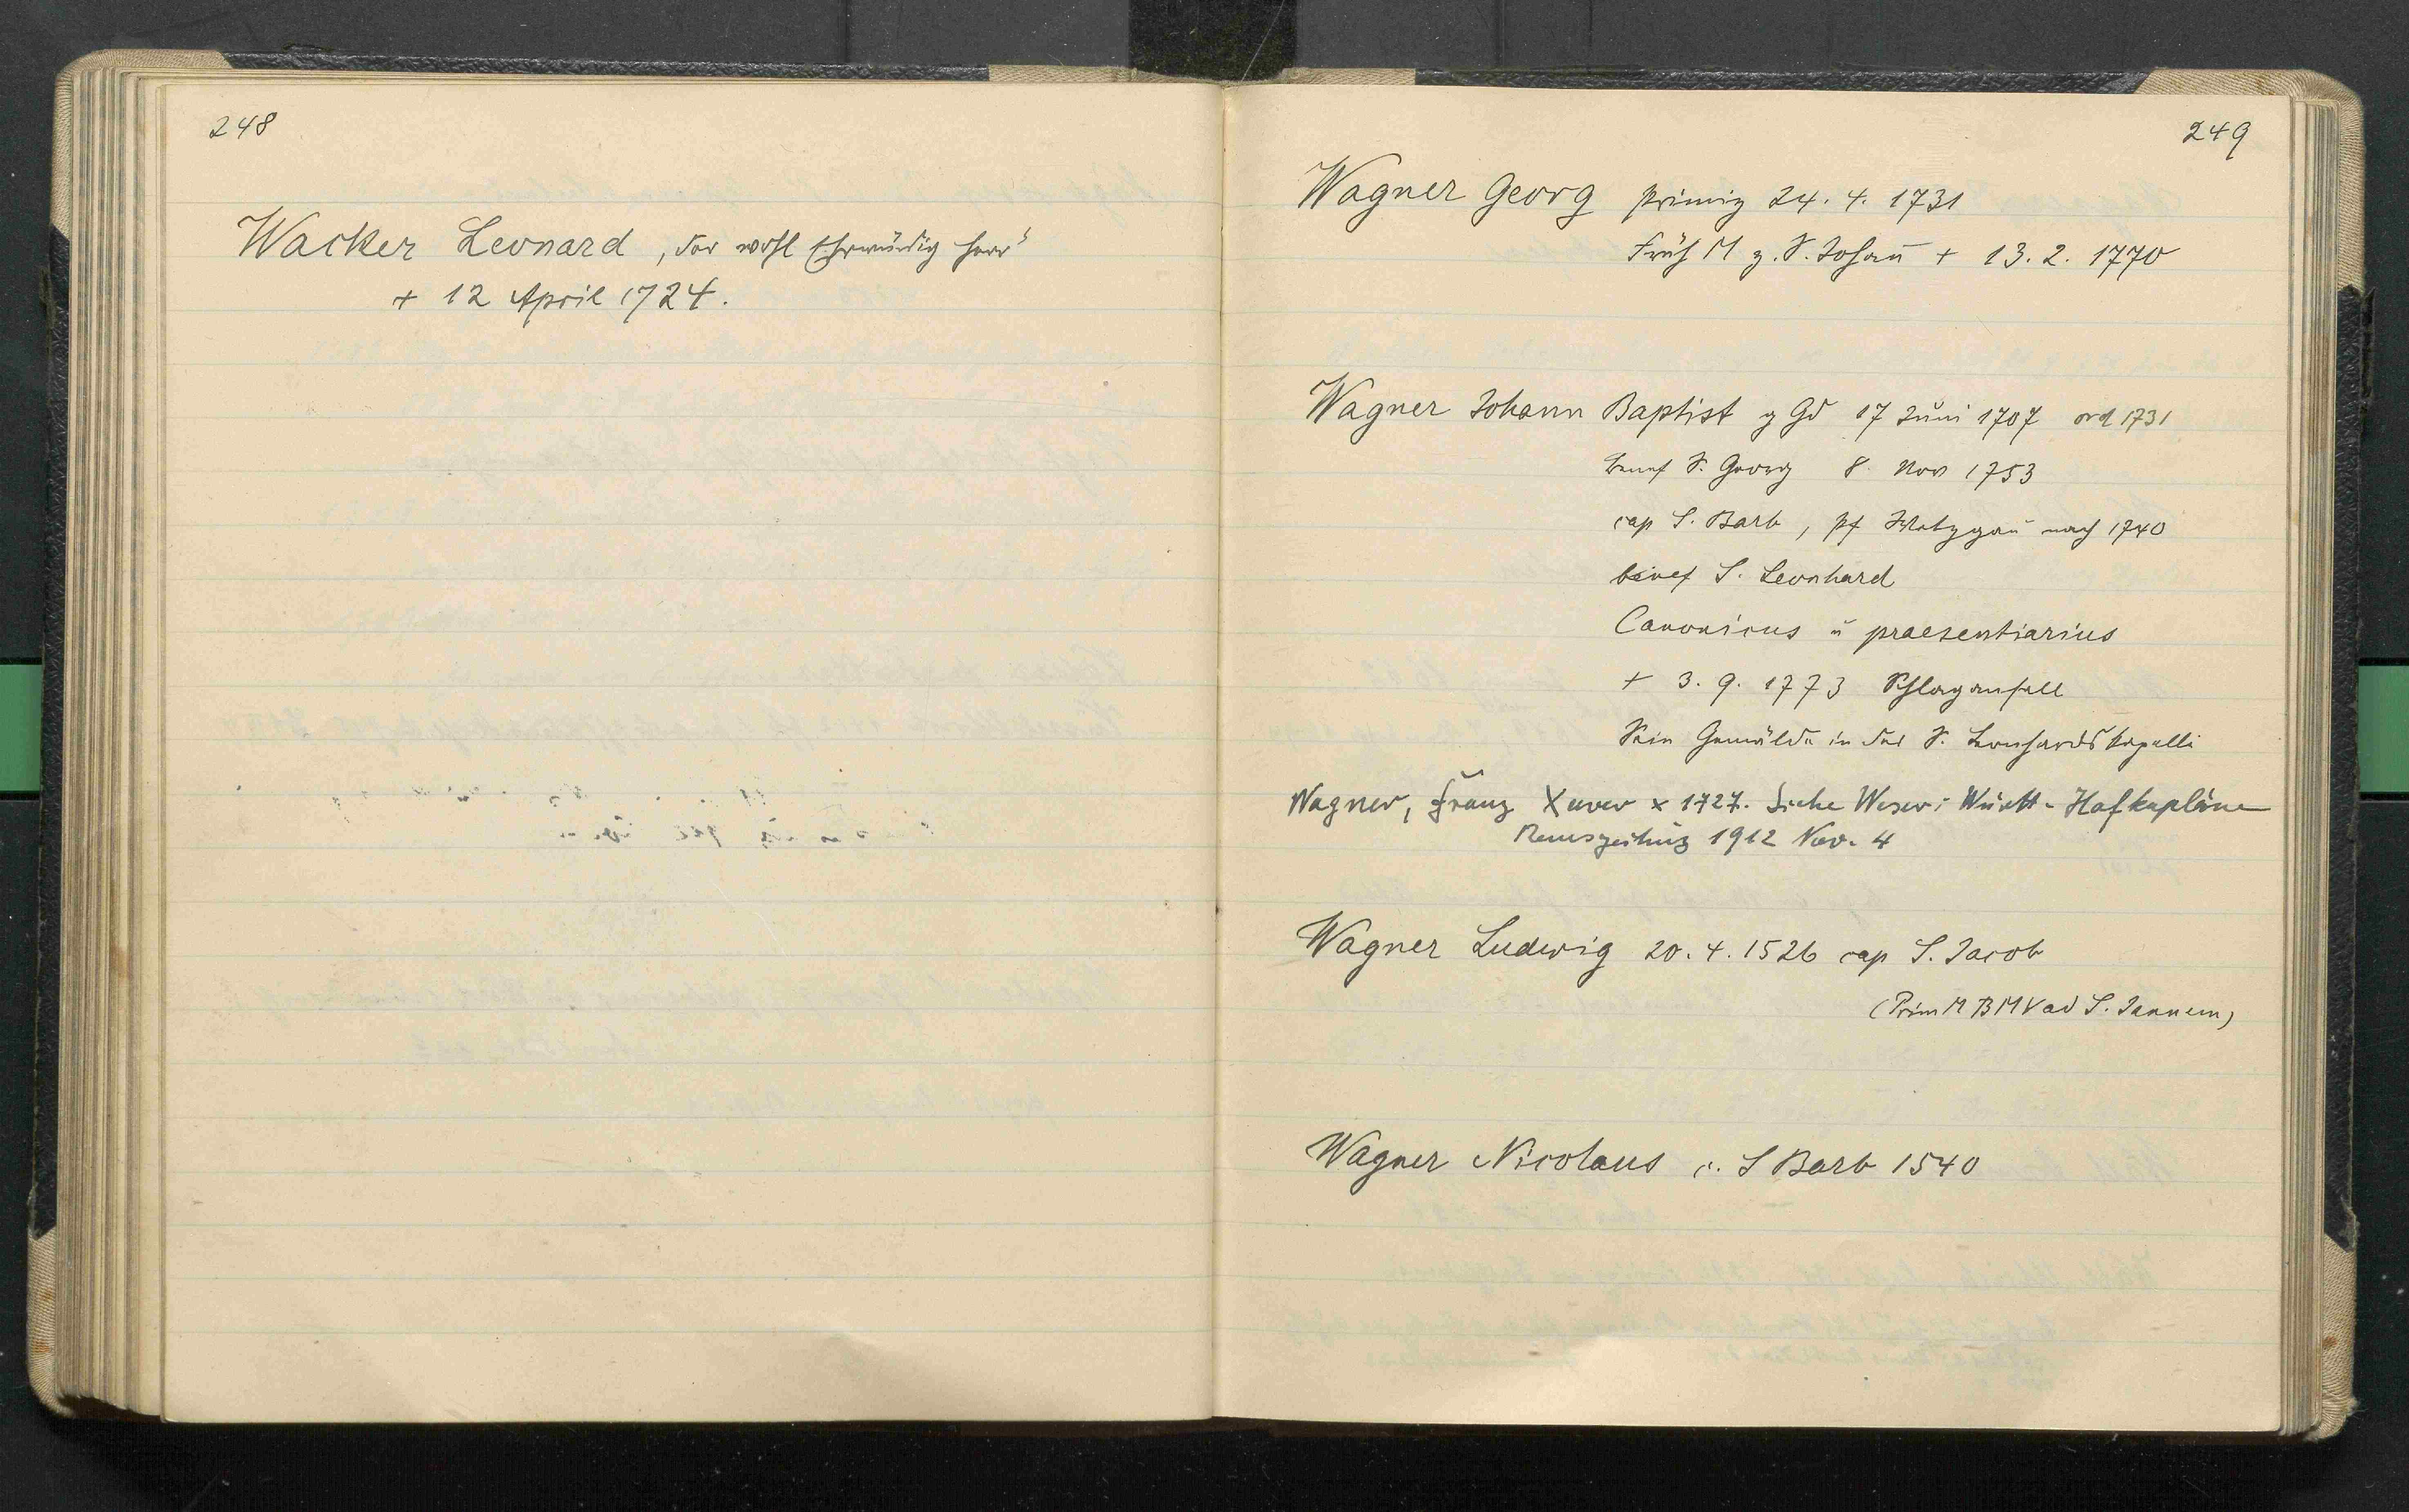 248
Wacker Leonard, der wohl Ehrwürdig Herr"
+ 12 April 1724.
249
Wagner Georg primiz 24. 4. 1731
Früh M z. S. Johañ + 13. 2. 1770
Wagner Johann Baptist g Gd 17 Juni 1707 ord 1731
benef S. Georg 8. Nov 1753
cap S. Barb, pf Wetzgau nach 1740
benef S. Leonhard
Canonicus u praesentiarius
+ 3. 9. 1773 Schlaganfall
Sein Gemälde in der S. Leonhardskapelle
Wagner, Franz Xaver × 1727. Siehe Weser: Württ. Hofkapläne
Remszeitung 1912 Nov. 4
Wagner Ludwig 20. 4. 1526 cap S. Jacob
(Prim M BMV ad S. Joannem)
Wagner Nicolaus c. S Barb 1540